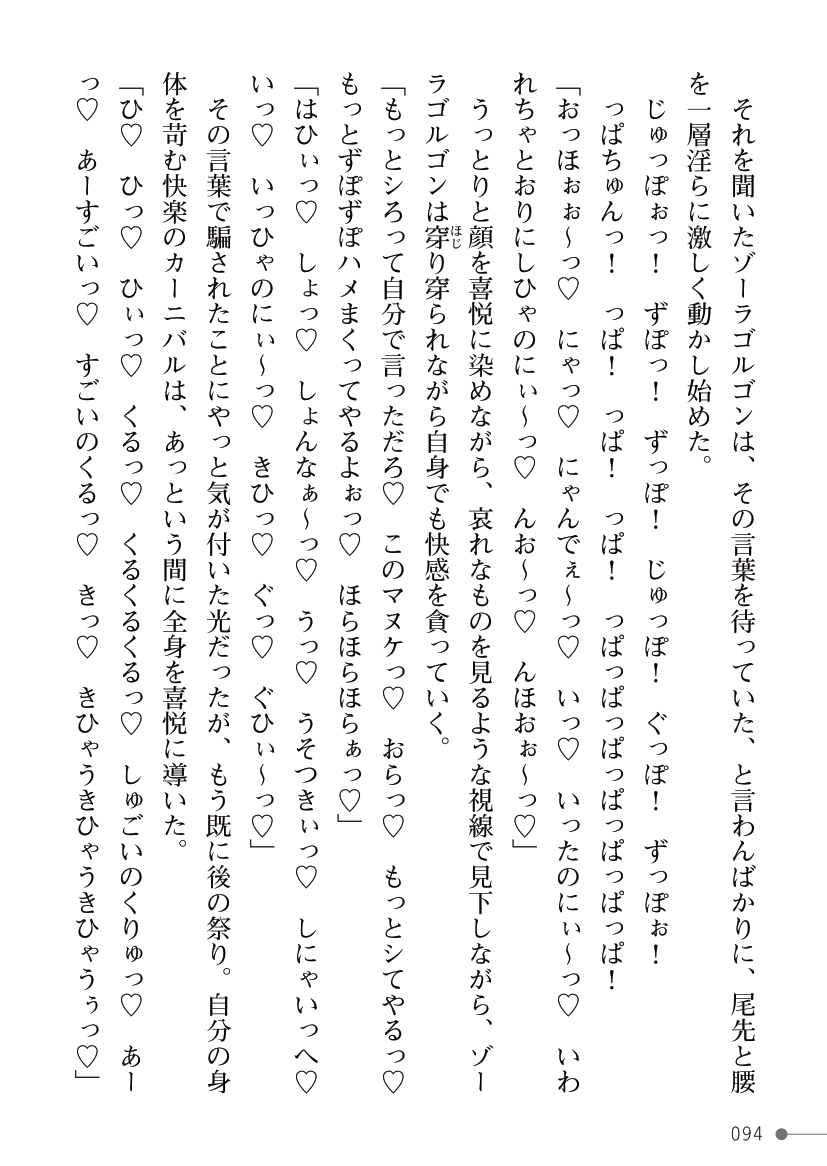 それを聞いたゾーラゴルゴンは、その言葉を待っていた、と言わんばかりに、尾先と腰
を一層淫らに激しく動かし始めた。
　じゅっぽぉっ！　ずぽっ！　ずっぽ！　じゅっぽ！　ぐっぽ！　ずっぽぉ！
　っぱちゅんっ！　っぱ！　っぱ！　っぱ！　っぱっぱっぱっぱっぱっぱっぱ！
「おっほぉぉ～っ♡　にゃっ♡　にゃんでぇ～っ♡　いっ♡　いったのにぃ～っ♡　いわ
れちゃとおりにしひゃのにぃ～っ♡　んお～っ♡　んほおぉ～っ♡」
　うっとりと顔を喜悦に染めながら、哀れなものを見るような視線で見下しながら、ゾー
ラゴルゴンは穿（ほじ）り穿られながら自身でも快感を貪っていく。
「もっとシろって自分で言っただろ♡　このマヌケっ♡　おらっ♡　もっとシてやるっ♡
もっとずぽずぽハメまくってやるよぉっ♡　ほらほらほらぁっ♡」
「はひぃっ♡　しょっ♡　しょんなぁ～っ♡　うっ♡　うそつきぃっ♡　しにゃいっへ♡
いっ♡　いっひゃのにぃ～っ♡　きひっ♡　ぐっ♡　ぐひぃ～っ♡」
　その言葉で騙されたことにやっと気が付いた光だったが、もう既に後の祭り。自分の身
体を苛む快楽のカーニバルは、あっという間に全身を喜悦に導いた。
「ひ♡　ひっ♡　ひぃっ♡　くるっ♡　くるくるくるっ♡　しゅごいのくりゅっ♡　あー
っ♡　あーすごいっ♡　すごいのくるっ♡　きっ♡　きひゃうきひゃうきひゃうぅっ♡」
094